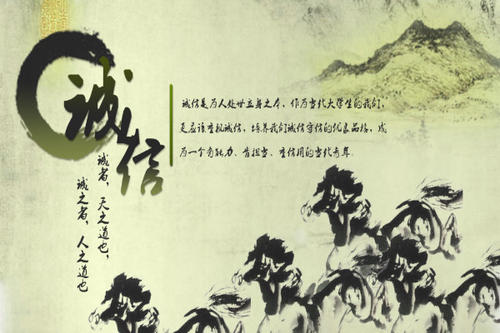 诚信
诚者，天之道也，
诚之者，人之道也
诚信是为人处世立身之本，作为当代大学生的我们，
更应该重视诚信，培养我们诚信守信的优良品格，成
为一个有能力、肯担当、重信用的当代青年。